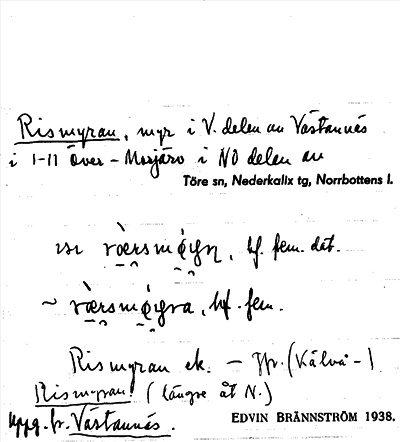 Rismyran, myr i V. delen av Västannäs
i 1-11 Över-Morjärv i NO delen av
Töre sn, Nederkalix tg, Norrbottens l.
fem. dat.
fem.
Rismyran ek. – Jfr. (Kälvå-)
Rismyran! (längre åt N.)
Uppg. fr. Västannäs.
EDVIN BRÄNNSTRÖM 1938.